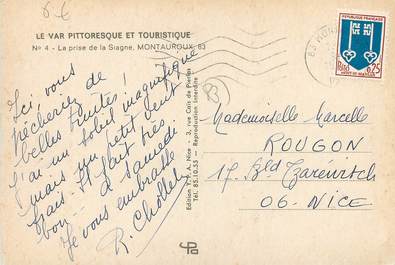 6.€
LE VAR PITTORESQUE ET TOURISTIQUE
N° 4 - La prise de la Siagne, MONTAUROUX, 83
Ici, vous
pêcheriez de
belles truites !
J'ai un soleil magnifique
mais un petit vent
frais. Il fait très
bon - à samedi
Je vous embrasse
R. Chollet
Edition T.A.A. Nice - 2, rue Cais de Pierlas
Tél. 85.10.53 - Reproduction Interdite
83
REPUBLIQUE FRANÇAISE
0,25
MONT-DE-MARSAN
Mademoiselle Marcelle
ROUGON
17 Bld Tzaréwitch
06. NICE